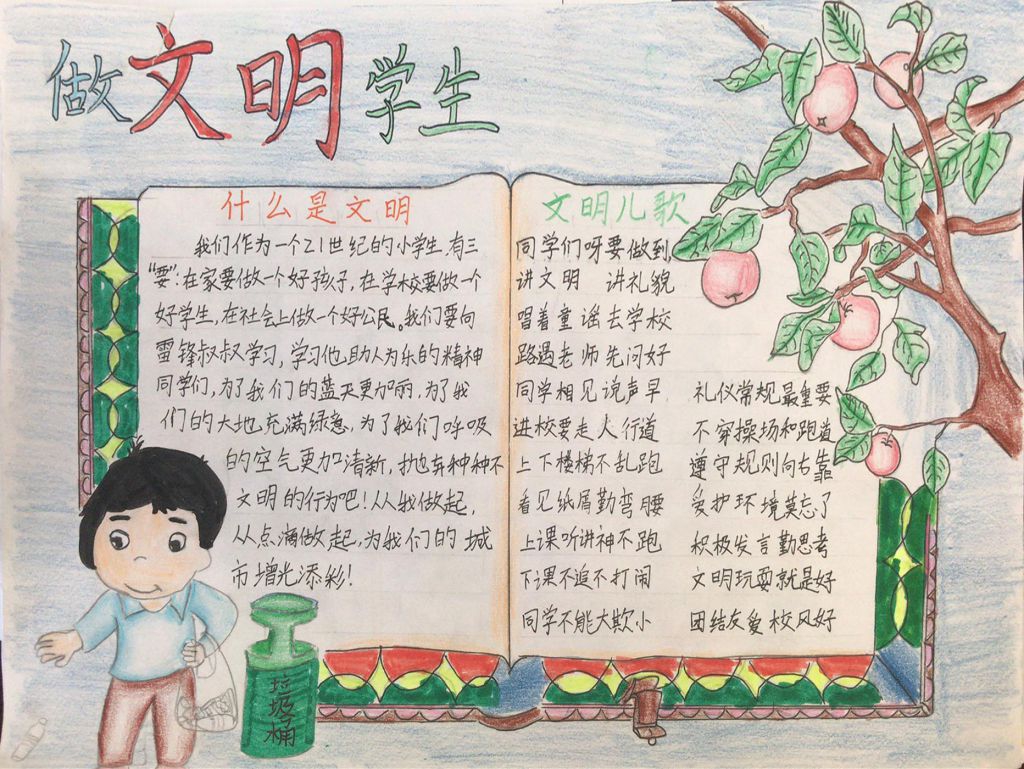 做文明学生
什么是文明
我们作为一个21世纪的小学生，有三
“要”：在家要做一个好孩子，在学校要做一个
好学生，在社会上做一个好公民。我们要向
雷锋叔叔学习，学习他助人为乐的精神
同学们，为了我们的蓝天更加丽，为了我
们的大地充满绿意，为了我们呼吸
的空气更加清新，抛弃种种不
文明的行为吧！从我做起，
从点滴做起，为我们的城
市增光添彩！
文明儿歌
同学们呀要做到，
讲文明 讲礼貌
唱着童谣去学校
路遇老师先问好
同学相见说声早，
进校要走人行道
上下楼梯不乱跑
看见纸屑勤弯腰
上课听讲神不跑
下课不追不打闹
同学不能大欺小
礼仪常规最重要
不穿操场和跑道
遵守规则向右靠
爱护环境莫忘了
积极发言勤思考
文明玩耍就是好
团结友爱校风好
垃圾桶